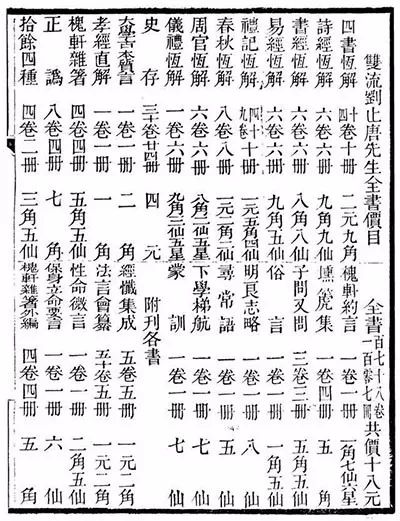 雙流劉止唐先生全書價目　全書一百七十八卷一百零七冊共價十八元
四書恆解　十四卷十冊　二元九角　槐軒約言　一卷一冊　一角七仙六星
詩經恆解　六卷六冊　九角九仙　壎箎集　一卷四冊　五角
書經恆解　六卷六冊　八角八仙　子問又問　三卷三冊　五角五仙
易經恆解　六卷六冊　九角五仙　俗言　一卷一冊　一角五仙
禮記恆解　四十九卷十冊　一元五角四仙　明良志略　一卷一冊　八仙
春秋恆解　八卷八冊　一元二角二仙　尋常語　一卷一冊　五仙
周官恆解　六卷六冊　八角三仙五星　下學梯航　一卷一冊　七仙
儀禮恆解　卷六冊　九角三仙五星　蒙訓　一卷一冊　七仙
史存　三十卷廿四冊　四元　附刊各書
大學古本質言　一卷一冊　二角　經懺集成　五卷五冊　一元二角
孝經直解　一卷一冊　一角　法言會纂　五十卷五冊　一元二角
槐軒雜著　四卷四冊　五角五仙　性命微言　一卷一冊　二角五仙
正譌　八卷四冊　七角　保身立命要言　一卷一冊　六仙
拾餘四種　四卷二冊　三角五仙　槐軒雜著外編　四卷四冊　五角